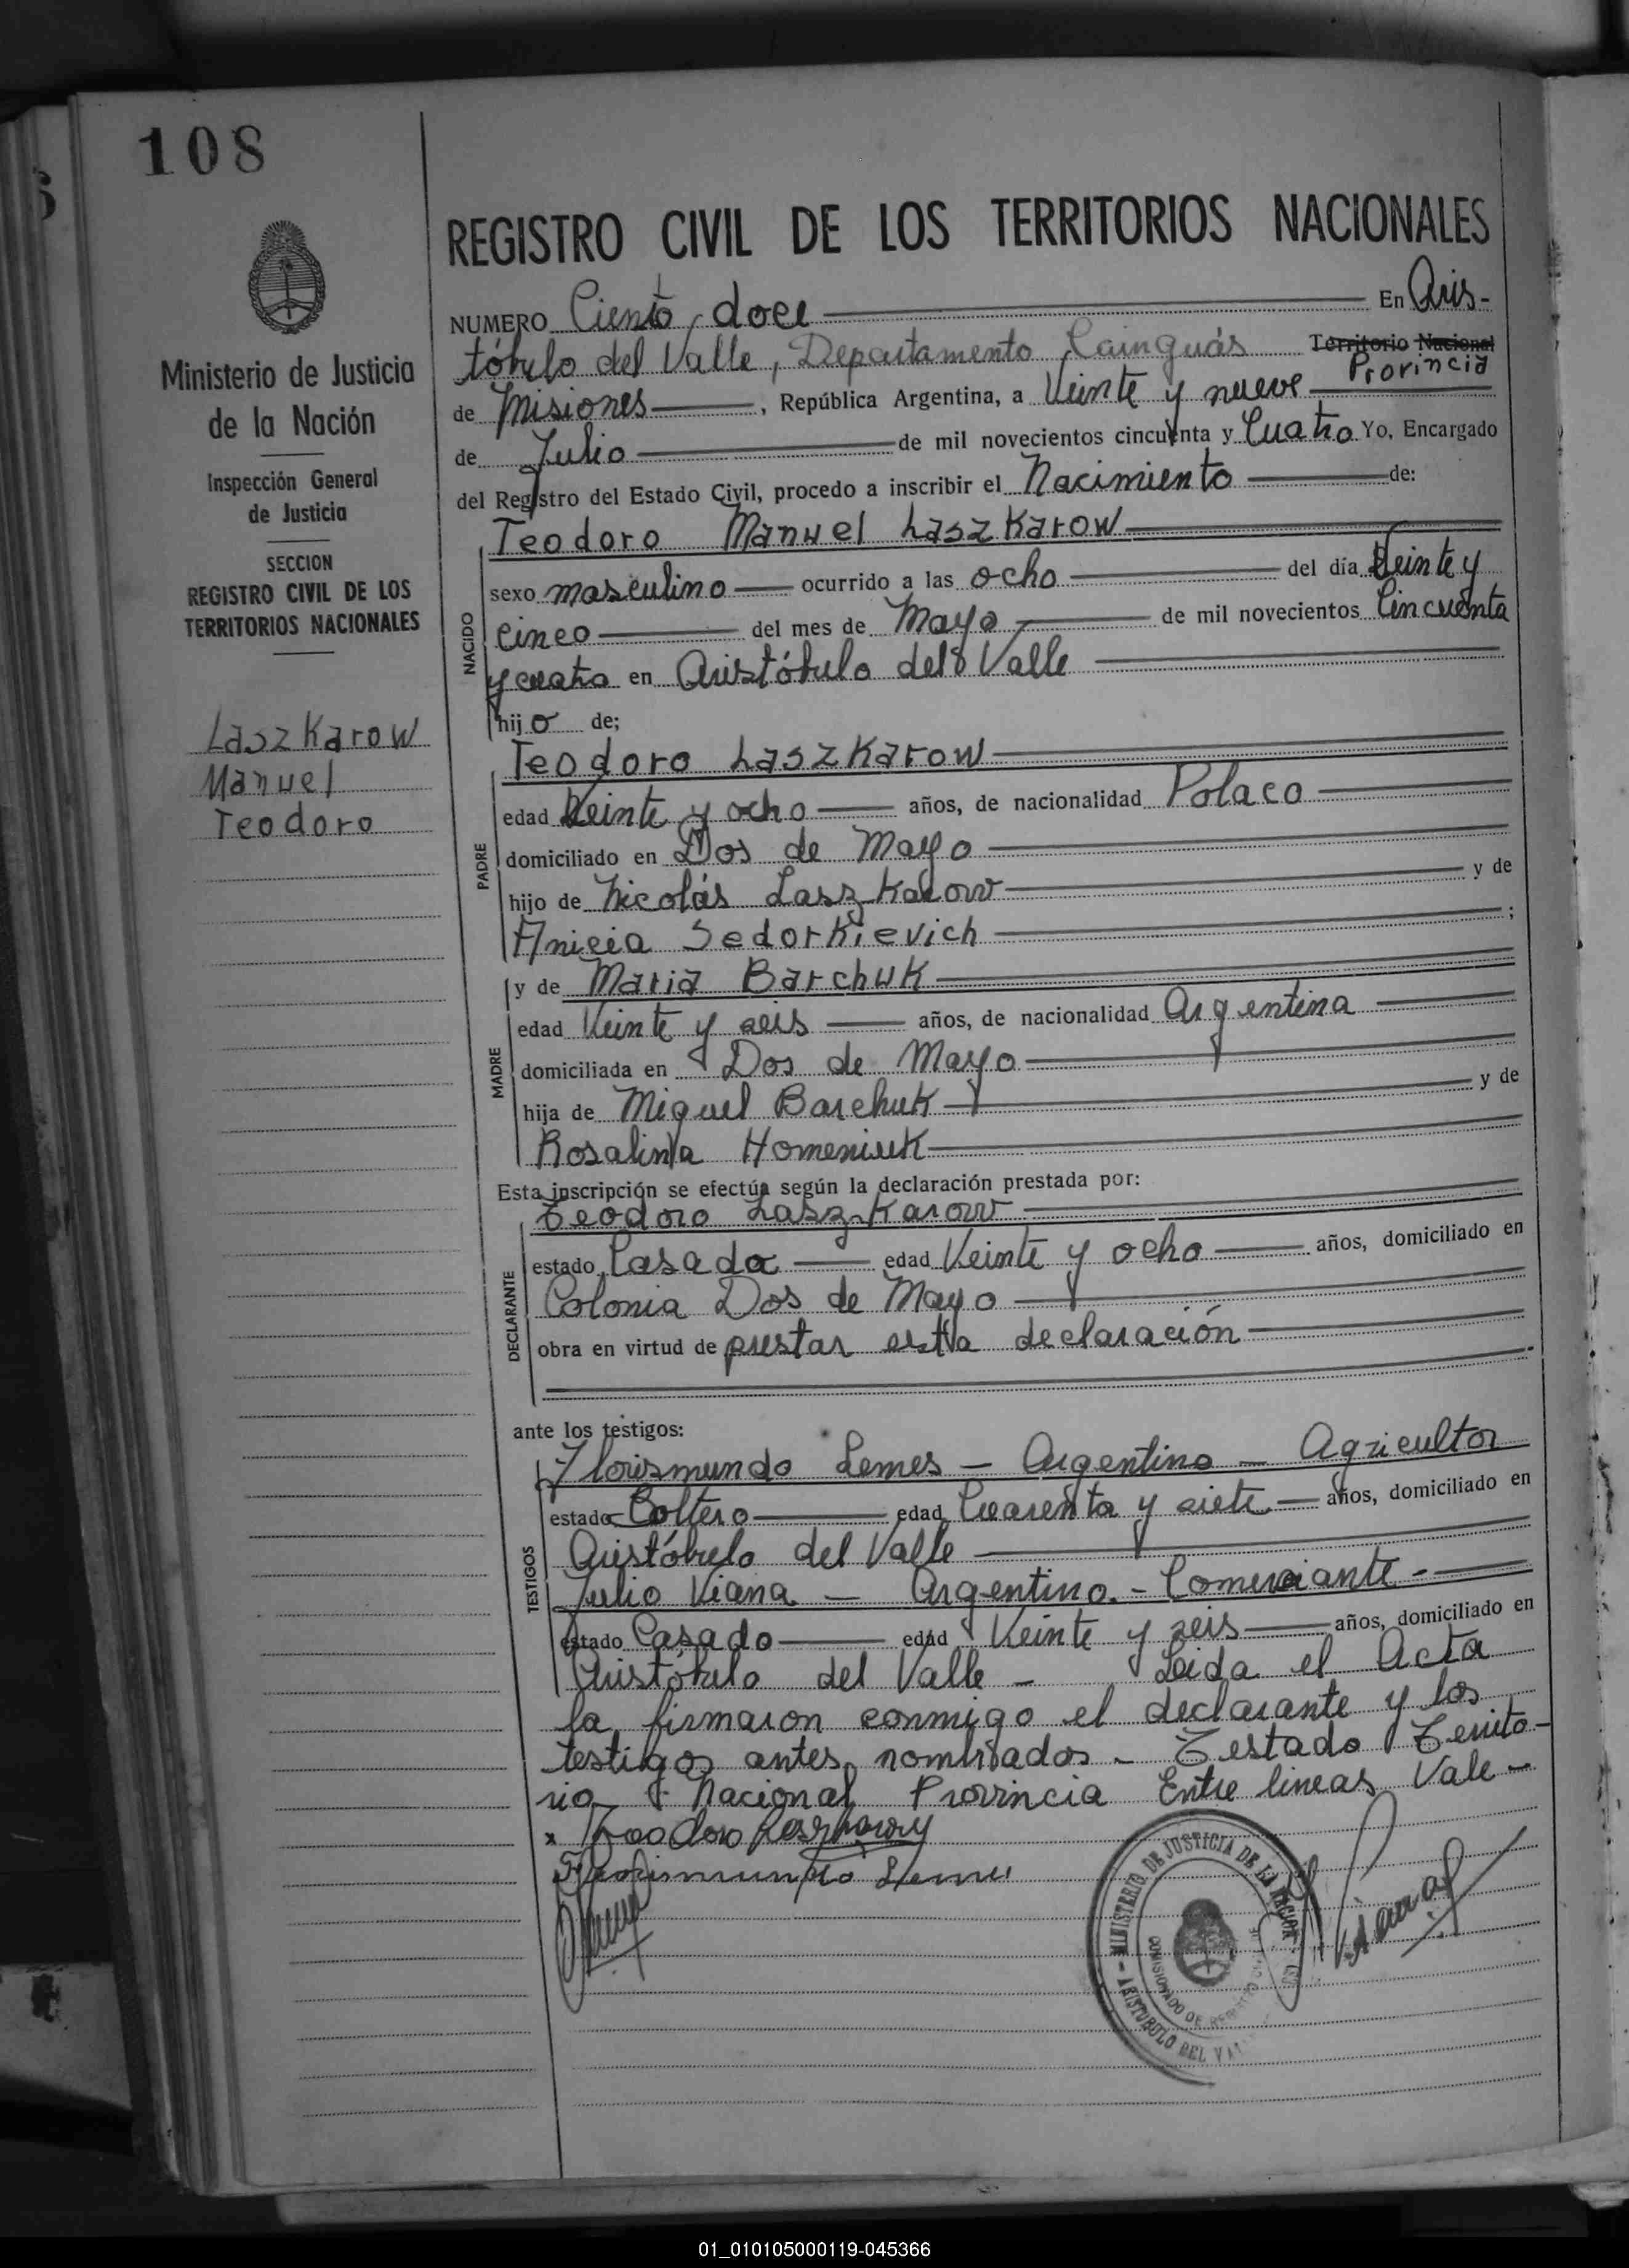 108
Ministerio de Justicia
de la Nación
Inspección General
de Justicia
SECCION
REGISTRO CIVIL DE LOS
TERRITORIOS NACIONALES
Laszkarow
Manuel
Teodoro
REGISTRO CIVIL DE LOS TERRITORIOS NACIONALES
NUMERO Ciento doce En Aris-
tóbulo del Valle, Departamento Cainguás Territorio Nacional
Provincia
de Misiones, República Argentina, a Veinte y nueve
de Julio de mil novecientos cincuenta y Cuatro Yo, Encargado
del Registro del Estado Civil, procedo a inscribir el Nacimiento de:
Teodoro Manuel Laszkarow
NACIDO
sexo masculino ocurrido a las ocho del día Veinte y
cinco del mes de Mayo de mil novecientos Cincuenta
y cuatro en Aristóbulo del Valle
hijo de;
PADRE
Teodoro Laszkarow
edad Veinte y ocho años, de nacionalidad Polaco
domiciliado en Dos de Mayo
hijo de Nicolás Laszkarow y de
Anicia Sedorkievich ;
MADRE
y de Maria Barchuk
edad Veinte y seis años, de nacionalidad Argentina
domiciliada en Dos de Mayo
hija de Miguel Barchuk y de
Rosalina Homeniuk
Esta inscripción se efectúa según la declaración prestada por:
DECLARANTE
Teodoro Laszkarow
estado Casado edad Veinte y ocho años, domiciliado en
Colonia Dos de Mayo
obra en virtud de prestar esta declaración
ante los testigos:
TESTIGOS
Florismundo Lemes - Argentino - Agricultor
estado Soltero edad Cuarenta y siete años, domiciliado en
Aristóbulo del Valle
Julio Viana - Argentino. - Comerciante -
estado Casado edad Veinte y seis años, domiciliado en
Aristóbulo del Valle - Leida el Acta
la firmaron conmigo el declarante y los
testigos antes nombrados - Testado Territo-
rio Nacional Provincia Entre lineas Vale -
x Teodoro Laszkarow
Florismundo Lemes
MINISTERIO DE JUSTICIA DE LA NACION
ARISTOBULO DEL VALLE
COMISIONADO DE REGISTRO CIVIL
01_010105000119-045366